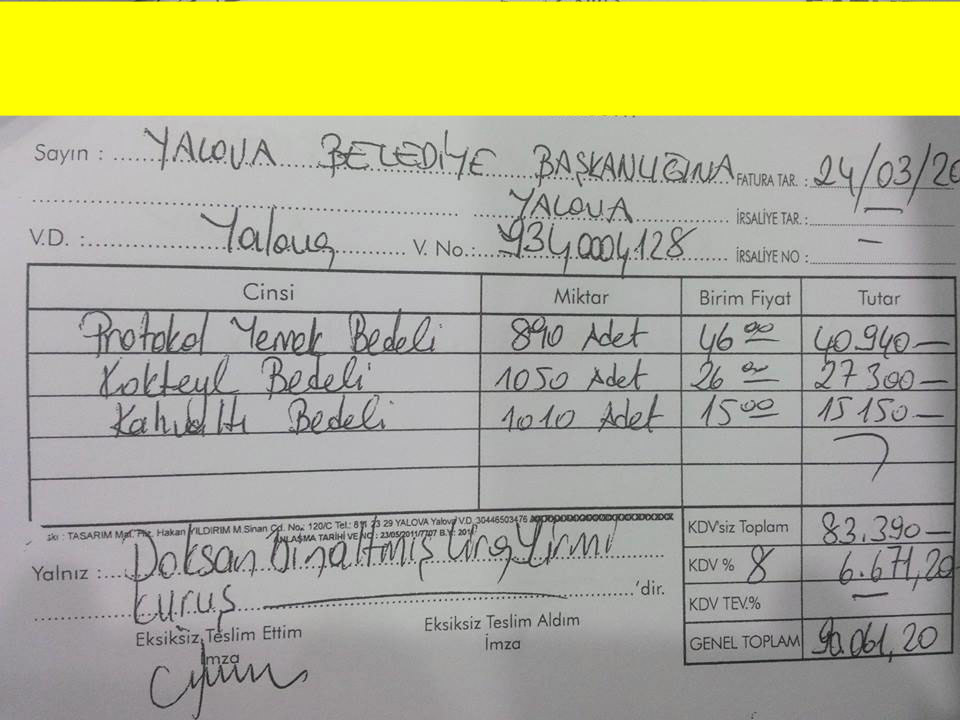 Sayın : YALOVA BELEDİYE BAŞKANLIĞINA FATURA TAR. : 24/03/20
YALOVA İRSALİYE TAR.: —
V.D. : Yalova V. No.: 9340004128 İRSALİYE NO : —
Cinsi Miktar Birim Fiyat Tutar
Protokol Yemek Bedeli 890 Adet 46 00 40.940—
Kokteyl Bedeli 1050 Adet 26 00 27300—
Kahvaltı Bedeli 1010 Adet 15 00 15150—
TASARIM Hakan YILDIRIM M.Sinan Cd. No.: 120/C Tel.: 811 23 29 YALOVA Yalova V.D. 30446503476
ANLAŞMA TARİHİ VE NO : 23/05/2011/7707
KDV'siz Toplam 83.390—
Yalnız : Doksan Bin altmış Lira Yirmi
KDV % 8 6.671,20
kuruş 'dir.
KDV TEV.% —
Eksiksiz Teslim Ettim Eksiksiz Teslim Aldım
İmza İmza
GENEL TOPLAM 90.061,20